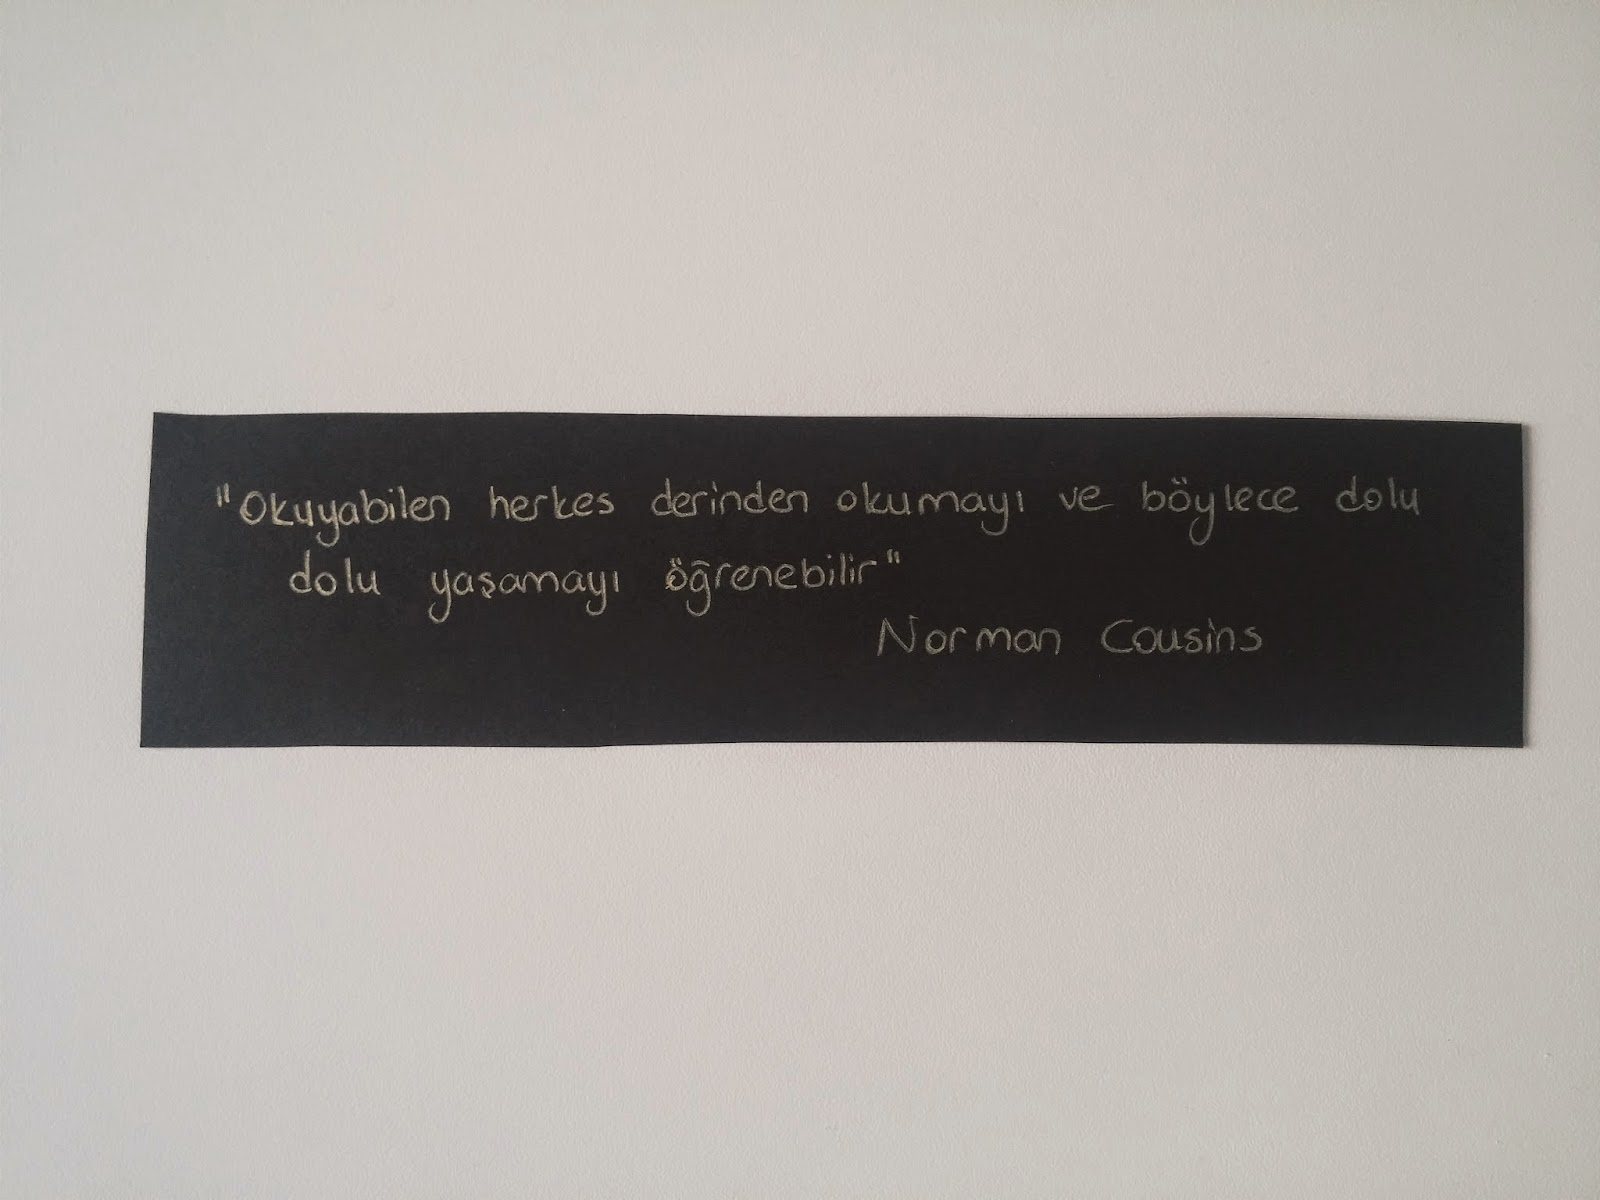 "Okuyabilen herkes derinden okumayı ve böylece dolu
dolu yaşamayı öğrenebilir"
Norman Cousins